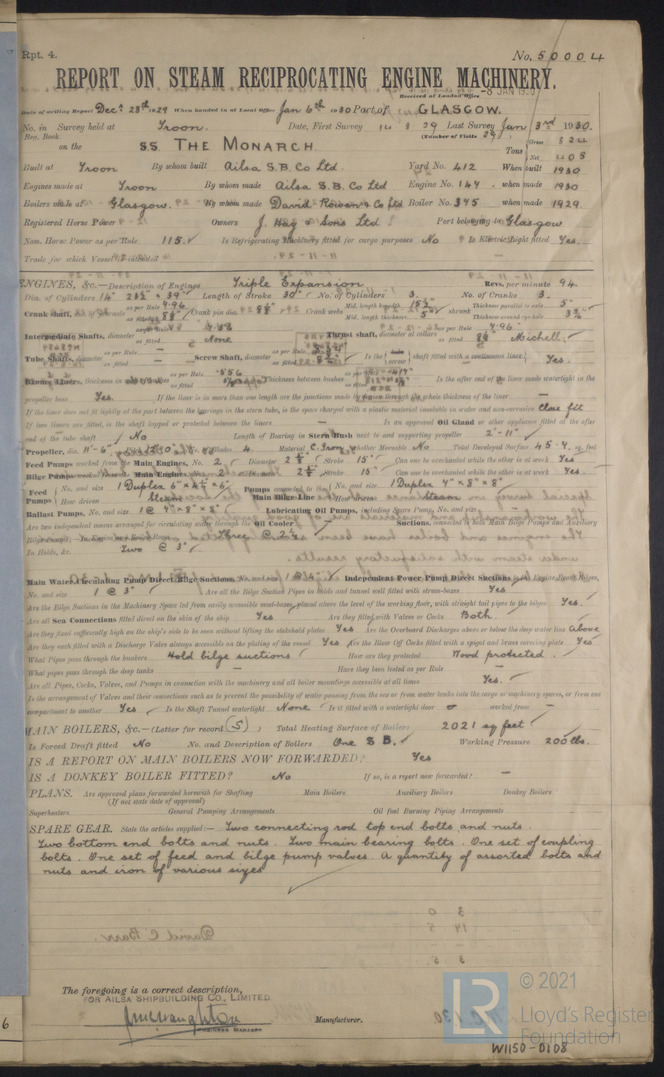 Rpt. 4.
No. 50004
REPORT ON STEAM RECIPROCATING ENGINE MACHINERY.
Received at London Office -8 JAN 1930
Date of writing Report Dec. 28th 1929 When handed in at Local Office Jan 6th 1930 Port of GLASGOW.
No. in Survey held at Troon. Date, First Survey Last Survey Jan 3rd 1930.
Reg. Book. (Number of Visits
on the S.S. THE MONARCH. Tons Gross 824
Net 405
Built at Troon By whom built Ailsa S.B. Co Ltd. Yard No. 412 When built 1930
Engines made at Troon By whom made Ailsa S.B. Co Ltd Engine No. 147 when made 1930
Boilers made at Glasgow. By whom made David Rowan & Co Ltd Boiler No. 345 when made 1929
Registered Horse Power Owners J. Hay & Sons Ltd Port belonging to Glasgow
Nom. Horse Power as per Rule 115. Is Refrigerating Machinery fitted for cargo purposes No Is Electric Light fitted Yes.
Trade for which Vessel is intended
ENGINES, &c.—Description of Engines Triple Expansion Revs. per minute 94.
Dia. of Cylinders 14" 23½" 39" Length of Stroke 30" No. of Cylinders 3. No. of Cranks 3.
Crank shaft, as per Rule 7.96 Crank pin dia. 8⅝" Crank webs Mid. length breadth 15½" Thickness parallel to axis 5"
as fitted Mid. length thickness 5" shrunk Thickness around eye-hole
Intermediate Shafts, diameter as fitted None Thrust shaft, diameter at collars as per Rule 7.96
as fitted Michell.
Tube Shaft, diameter as fitted — Screw Shaft, diameter as per Rule Is the shaft fitted with a continuous liner Yes.
Bronze Liners, thickness in way of bushes as per Rule .556 Thickness between bushes Is the after end of the liner made watertight in the
propeller boss Yes. If the liner is in more than one length are the junctions made by fusion through the whole thickness of the liner —
If the liner does not fit tightly at the part between the bearings in the stern tube, is the space charged with a plastic material insoluble in water and non-corrosive Close fit
If two liners are fitted, is the shaft lapped or protected between the liners — Is an approved Oil Gland or other appliance fitted at the after
end of the tube shaft No Length of Bearing in Stern Bush next to and supporting propeller 2'-11"
Propeller, dia. 11'-6" No. of Blades 4 Material C. Iron whether Moveable No Total Developed Surface 45.7 sq. feet
Feed Pumps worked from the Main Engines, No. 2, Diameter 2⅞" Stroke 15" Can one be overhauled while the other is at work Yes
Bilge Pumps worked from the Main Engines, No. 2 Diameter 2⅞" Stroke 15" Can one be overhauled while the other is at work Yes
Feed Pumps No. and size 1 Duplex 6" x 4½" x 6" Pumps connected to the Main Bilge Line No. and size 1 Duplex 4" x 8" x 8"
How driven Steam How driven Steam
Ballast Pumps, No. and size 1 @ 4" x 8" x 8" Lubricating Oil Pumps, including Spare Pump, No. and size
Are two independent means arranged for circulating water through the Oil Cooler Suctions, connected to both Main Bilge Pumps and Auxiliary
In Holds, &c. Two @ 3"
Main Water Circulating Pump Direct Bilge Suctions, Independent Power Pump Direct Suctions to the Engine Room Bilges,
No. and size 1 @ 3" Are all the Bilge Suction Pipes in holds and tunnel well fitted with strum-boxes Yes
Are the Bilge Suctions in the Machinery Space led from easily accessible mud-boxes, placed above the level of the working floor, with straight tail pipes to the bilges Yes.
Are all Sea Connections fitted direct on the skin of the ship Yes Are they fitted with Valves or Cocks Both.
Are they fixed sufficiently high on the ship's side to be seen without lifting the stokehold plates Yes Are the Overboard Discharges above or below the deep water line above
Are they each fitted with a Discharge Valve always accessible on the plating of the vessel Yes Are the Blow Off Cocks fitted with a spigot and brass covering plate Yes
What Pipes pass through the bunkers Hold bilge suctions How are they protected Wood protected.
What pipes pass through the deep tanks — Have they been tested as per Rule
Are all Pipes, Cocks, Valves, and Pumps in connection with the machinery and all boiler mountings accessible at all times Yes.
Is the arrangement of Valves and their connections such as to prevent the possibility of water passing from the sea or from water tanks into the cargo or machinery spaces, or from one
compartment to another Yes Is the Shaft Tunnel watertight None Is it fitted with a watertight door worked from —
MAIN BOILERS, &c.—(Letter for record (S)) Total Heating Surface of Boilers 2021 sq feet
Is Forced Draft fitted No No. and Description of Boilers One S.B. Working Pressure 200 lbs.
IS A REPORT ON MAIN BOILERS NOW FORWARDED? Yes
IS A DONKEY BOILER FITTED? No If so, is a report now forwarded? —
PLANS. Are approved plans forwarded herewith for Shafting Main Boilers Auxiliary Boilers Donkey Boilers
(If not state date of approval)
Superheaters General Pumping Arrangements Oil fuel Burning Piping Arrangements
SPARE GEAR. State the articles supplied:— Two connecting rod top end bolts and nuts.
Two bottom end bolts and nuts. Two main bearing bolts. One set of coupling
bolts. One set of feed and bilge pump valves. A quantity of assorted bolts and
nuts and iron of various sizes
The foregoing is a correct description,
FOR AILSA SHIPBUILDING CO., LIMITED
Manufacturer.
LR © 2021
Lloyd's Register
Foundation
W1150-0108
6